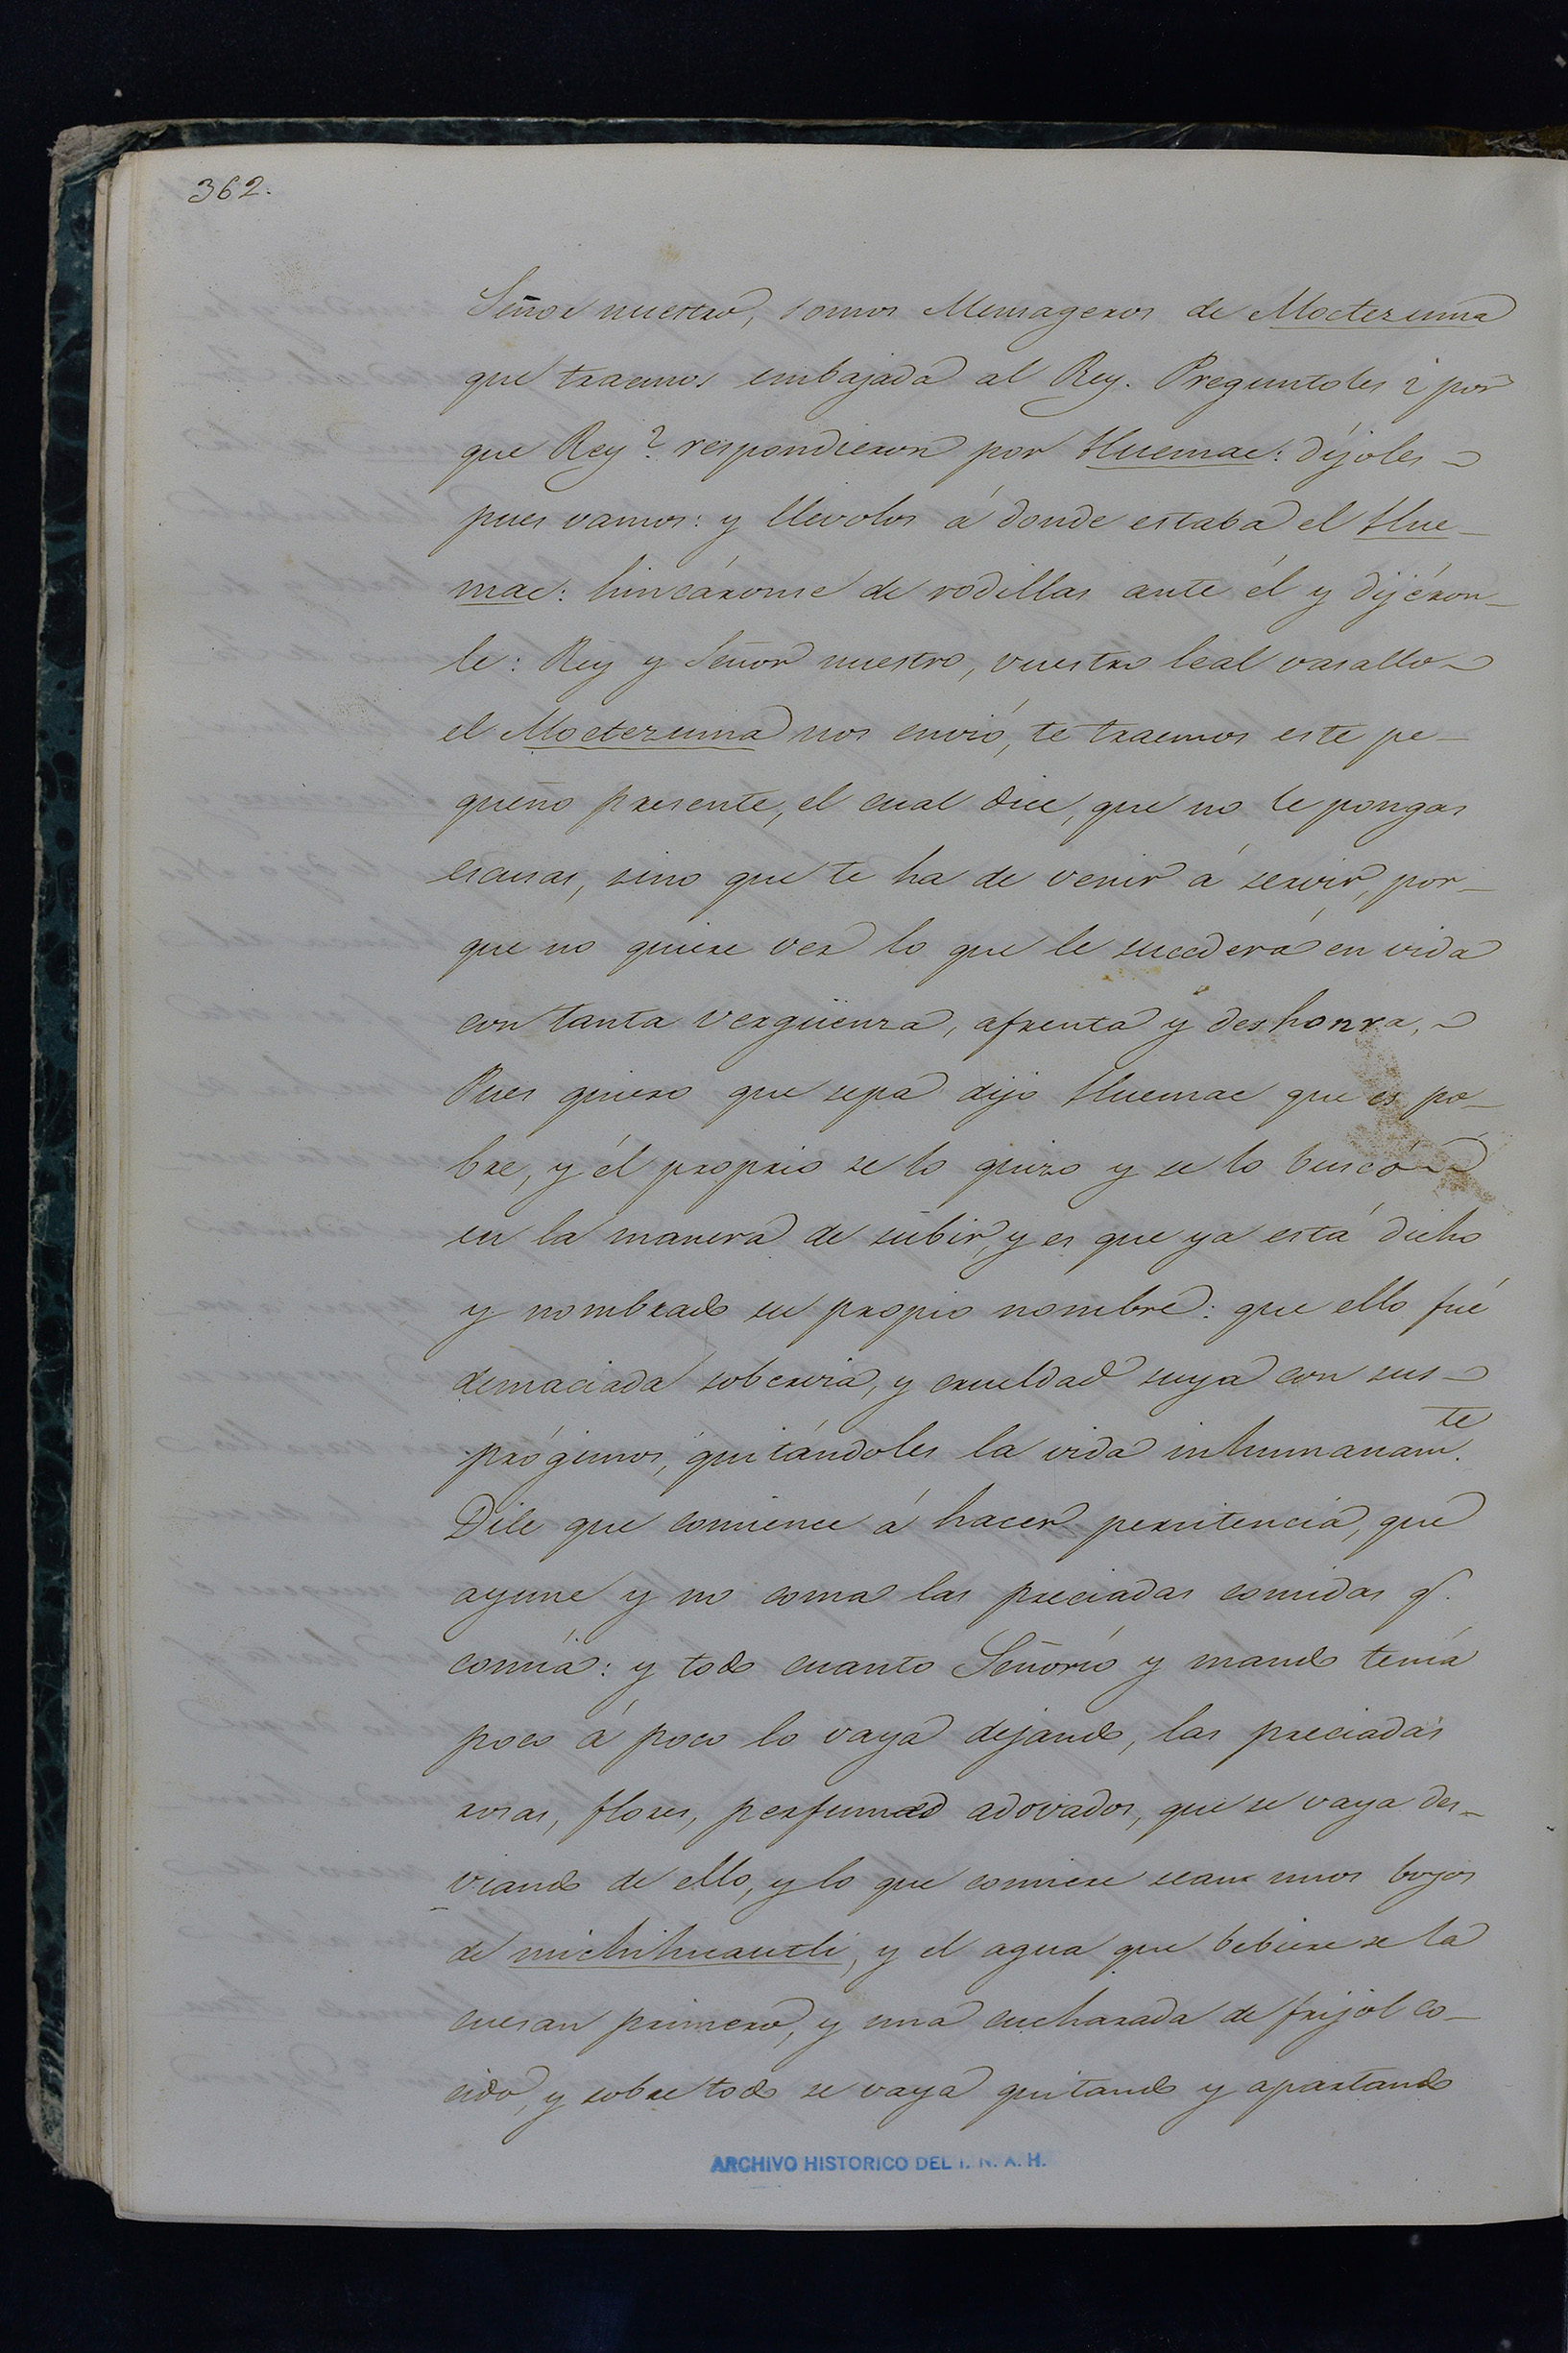 362.
Señor nuestro, somos Mensageros de Moctezuma
que traemos embajada al Rey. Preguntoles ¿por
que Rey? respondieron por Huemac: díjoles
pues vamos: y llevolos á donde estaba el Hue-
mac: hincáronse de rodillas ante él y dijéron-
le: Rey y Señor nuestro, vuestro leal vasallo
el Moctezuma nos envió, te traemos este pe-
queño presente, el cual dice, que no le pongas
escusas, sino que te ha de venir á servir, por-
que no quiere ver lo que le sucederá en vida
con tanta vergüenza, afrenta y deshonra,
Pues quiero que sepa dijo Huemac que es po-
bre, y él proprio se lo quizo y se lo buscó
en la manera de subir, y es que ya está dicho
y nombrado su propio nombre: que ello fué
demaciada sobervia, y crueldad suya con sus
prógimos, quitándoles la vida inhumanam.te
Dile que comience á hacer penitencia, que
ayune y no coma las preciadas comidas q.
comía: y todo cuanto Señorío y mando tenía
poco á poco lo vaya dejando, las preciadas
rosas, flores, perfumes adovados, que se vaya des-
viando de ello, y lo que comiere sean unos boyos
de michihuautli, y el agua que bebiere se la
cuesan primero, y una cucharada de frijol co-
cido, y sobre todo se vaya quitando y apartando
ARCHIVO HISTORICO DEL I. N. A. H.